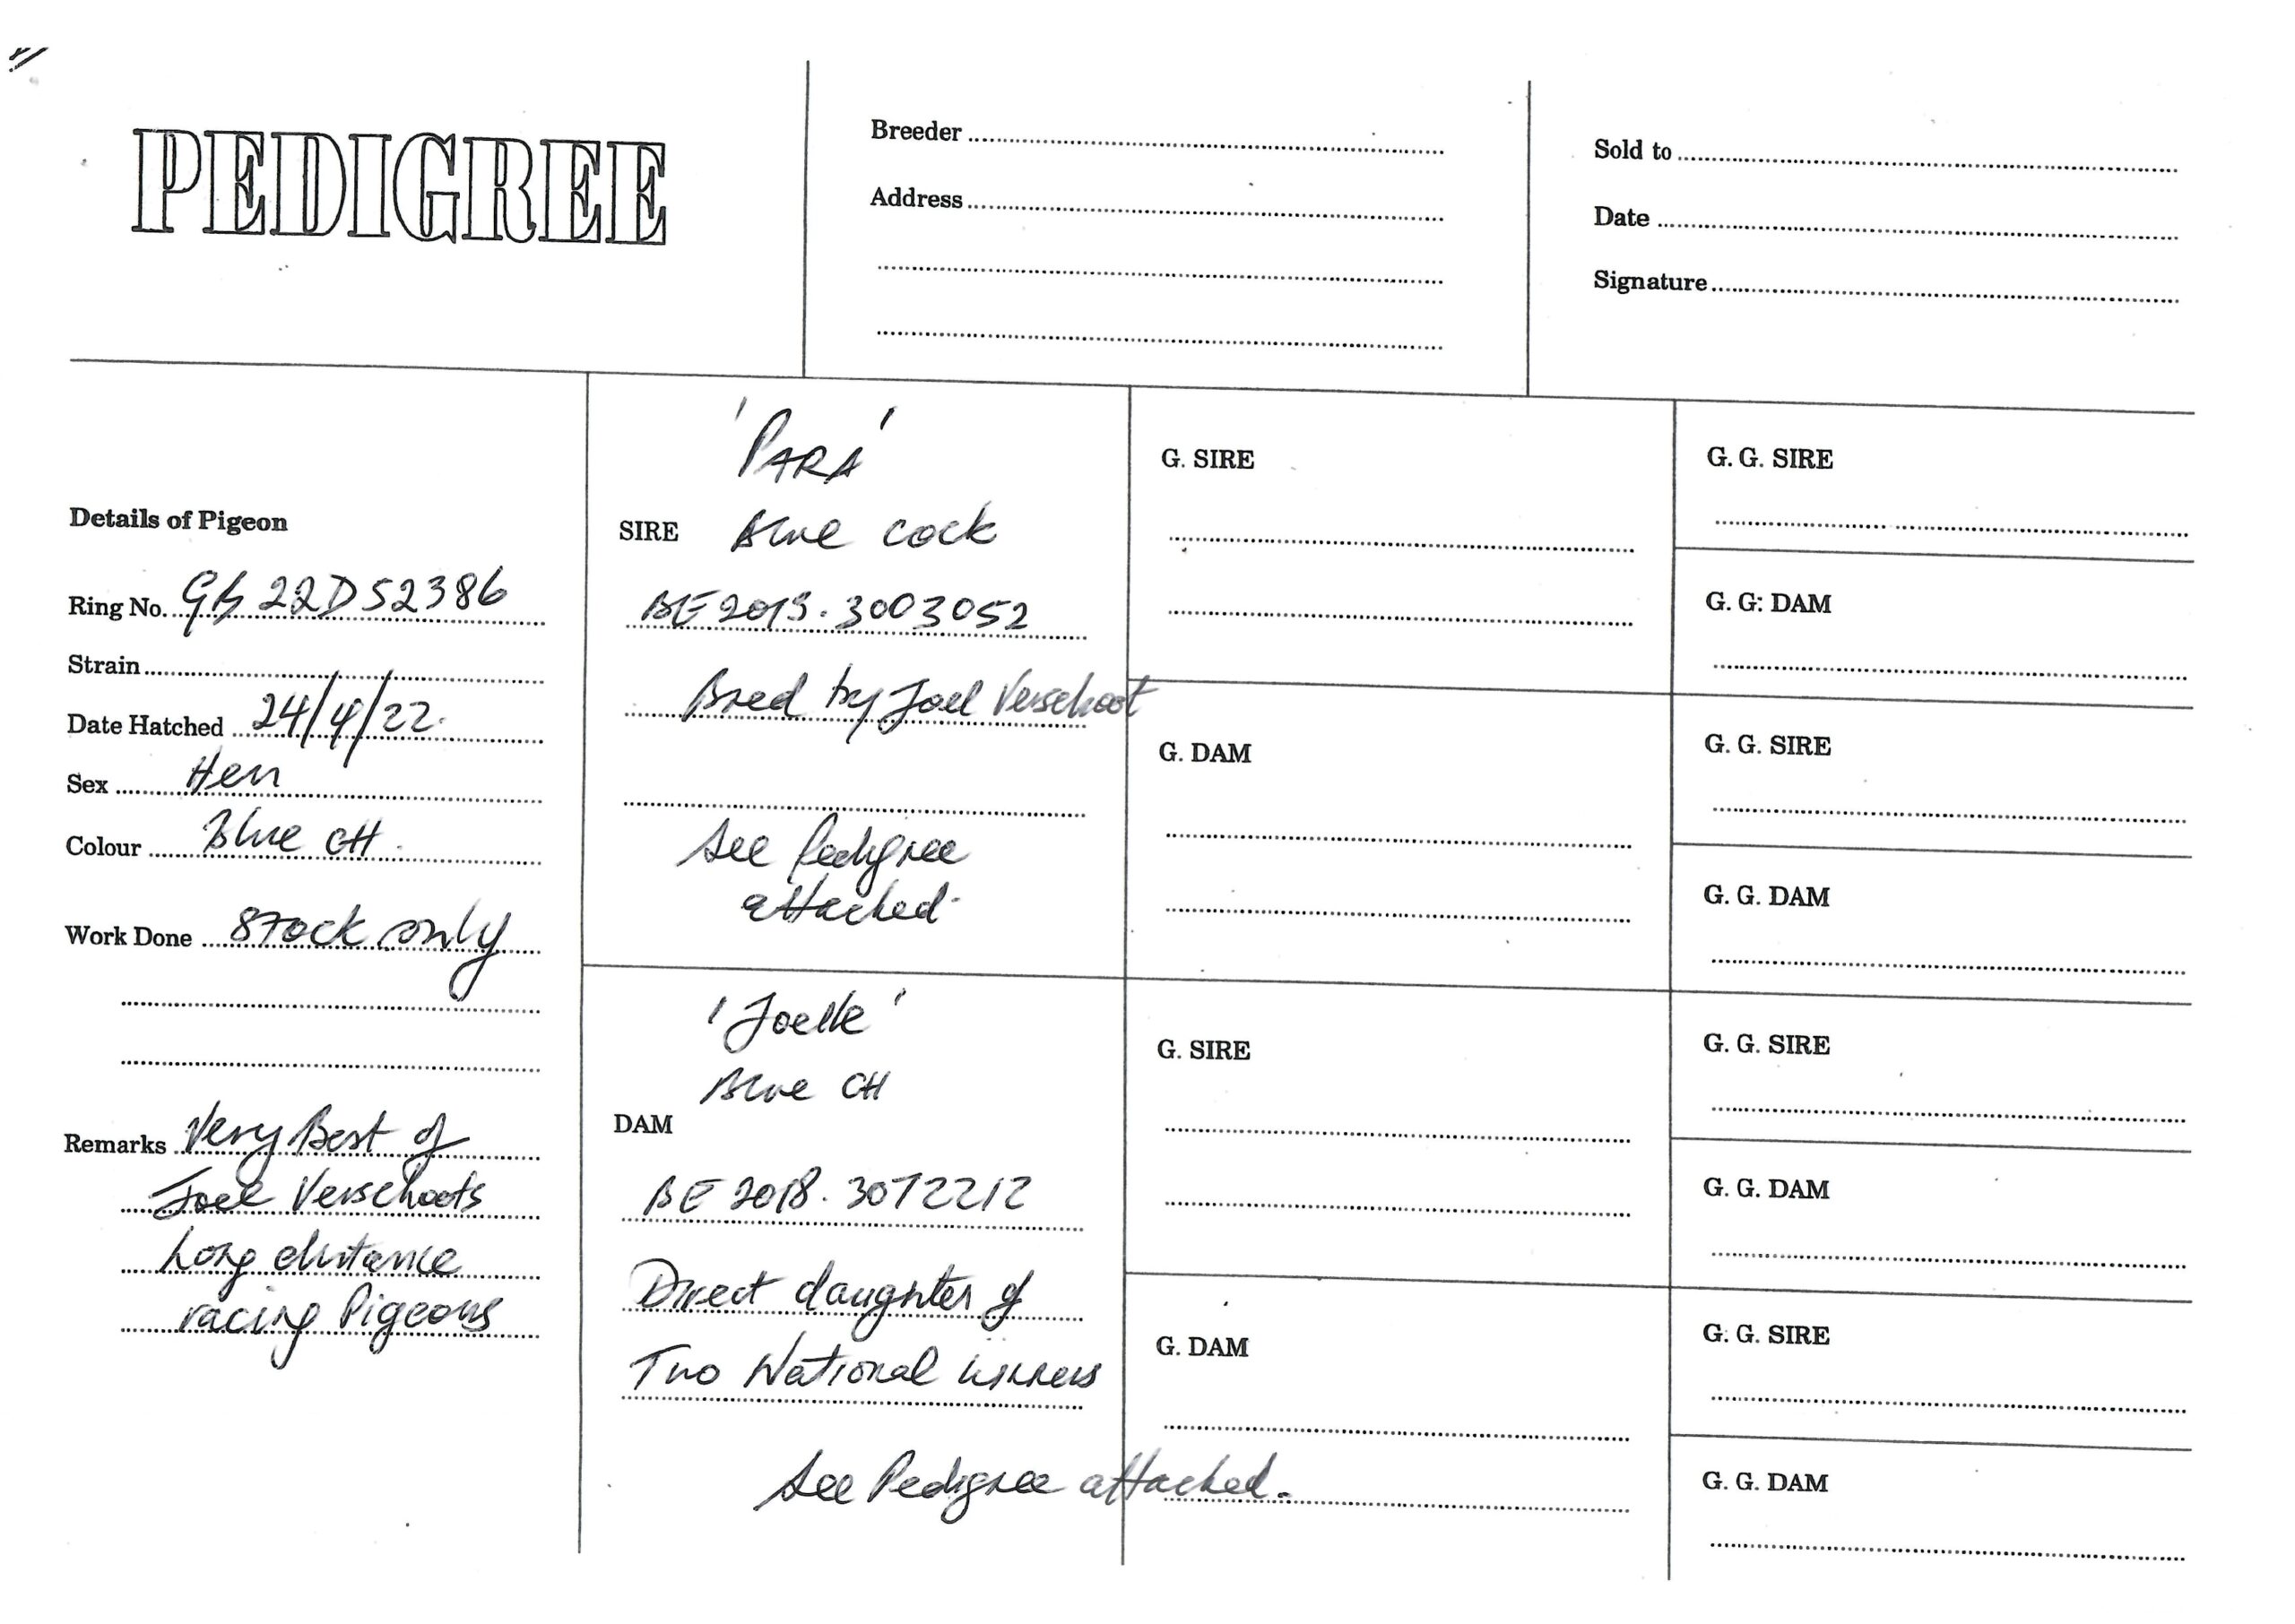 PEDIGREE
Breeder
Address
Sold to
Date
Signature
Details of Pigeon
Ring No. GB 22D52386
Strain
Date Hatched 24/4/22.
Sex Hen
Colour Blue CH.
Work Done Stock only
Remarks Very Best of
Joel Verschoots
Long distance
racing Pigeons
'PARA'
SIRE Blue cock
BE 2019.3003052
Bred by Joel Verschoot
See Pedigree
attached.
'Joelle'
Blue CH
DAM
BE 2018.3072212
Direct daughter of
Two National winners
See Pedigree attached.
G. SIRE
G. DAM
G. SIRE
G. DAM
G. G. SIRE
G. G: DAM
G. G. SIRE
G. G. DAM
G. G. SIRE
G. G. DAM
G. G. SIRE
G. G. DAM